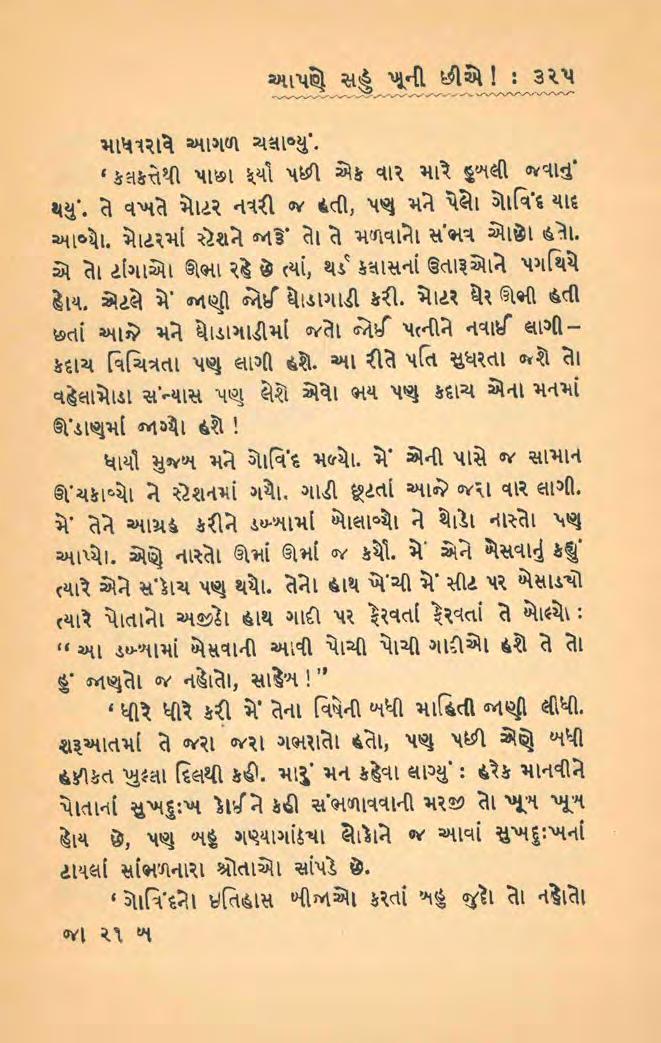 આપણે સહુ ખૂની છીએ! : ૩૨૫
માધવરાવે આગળ ચલાવ્યું.
‘ કલકત્તેથી પાછા ફર્યા પછી એક વાર મારે હુબલી જવાનું
થયું. તે વખતે મોટર નવરી જ હતી, પણ મને પેલો ગોવિંદ યાદ
આવ્યો. મોટરમાં સ્ટેશને જાઉં તો તે મળવાનો સંભવ ઓછો હતો.
એ તો ટાંગાઓ ઊભા રહે છે ત્યાં, થર્ડ ક્લાસનાં ઉતારૂઓને પગથિયે
હોય. એટલે મેં જાણી જોઈ ઘોડાગાડી કરી. મોટર ઘેર ઊભી હતી
છતાં આજે મને ઘોડાગાડીમાં જતો જોઈ પત્નીને નવાઈ લાગી –
કદાચ વિચિત્રતા પણ લાગી હશે. આ રીતે પતિ સુધરતા જશે તો
વહેલામોડા સંન્યાસ પણ લેશે એવો ભય પણ કદાચ એના મનમાં
ઊંડાણમાં જાગ્યો હશે !
ધાર્યા મુજબ મને ગોવિંદ મળ્યો. મેં એની પાસે જ સામાન
ઊંચકાવ્યો ને સ્ટેશનમાં ગયો. ગાડી છૂટતાં આજે જરા વાર લાગી.
મેં તેને આગ્રહ કરીને ડબ્બામાં બોલાવ્યો ને થોડો નાસ્તો પણ
આપ્યો. એણે નાસ્તો ઊભાં ઊભાં જ કર્યો. મેં એને બેસવાનું કહ્યું
ત્યારે એને સંકોચ પણ થયો. તેનો હાથ ખેંચી મેં સીટ પર બેસાડ્યો
ત્યારે પોતાનો અજીઠો હાથ ગાદી પર ફેરવતાં ફેરવતાં તે બોલ્યો :
“ આ ડબ્બામાં બેસવાની આવી પોચી પોચી ગાદીઓ હશે તે તો
હું જાણતો જ નહોતો, સાહેબ !”
‘ ધીરે ધીરે કરી મેં તેના વિષેની બધી માહિતી જાણી લીધી.
શરૂઆતમાં તે જરા જરા ગભરાતો હતો, પણ પછી એણે બધી
હકીકત ખુલ્લા દિલથી કહી. મારું મન કહેવા લાગ્યું : હરેક માનવીને
પોતાનાં સુખદુઃખ કોઈને કહી સંભળાવવાની મરજી તો ખૂબ ખૂબ
હોય છે, પણ બહુ ગણ્યાગાંઠ્યા લોકોને જ આવાં સુખદુઃખનાં
ટાયલાં સાંભળનારા શ્રોતાઓ સાંપડે છે.
‘ ગોવિંદનો ઇતિહાસ બીજાઓ કરતાં બહુ જુદો તો નહોતો
જા ૨૧ બ